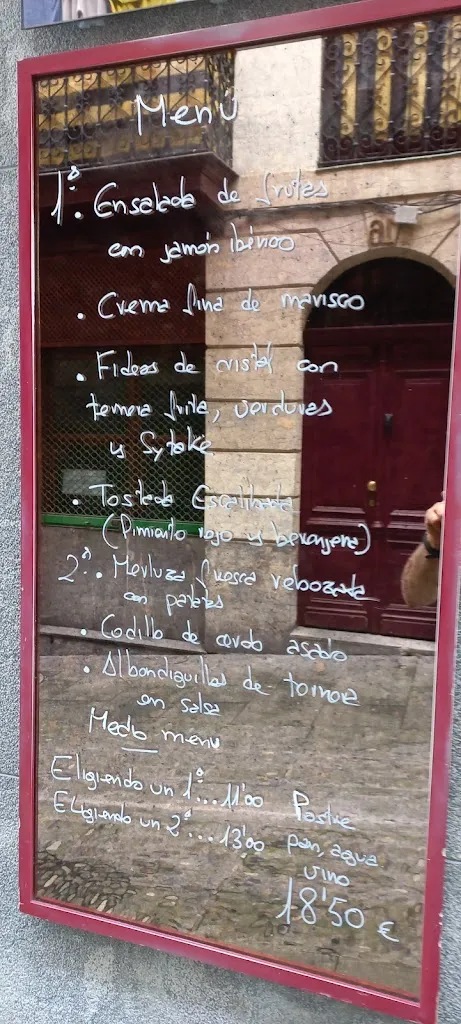 Menú
1º. Ensalada de frutas
con jamón ibérico
. Crema fina de marisco
. Fideos de cristal con
ternera frita, verduras
y Sytake
. Tostada Escalibada
(Pimiento rojo y berenjena)
2º. Merluza fresca rebozada
con patatas
. Codillo de cerdo asado
. Albondiguillas de ternera
en salsa
Medio menu
Eligiendo un 1º... 11'00
Eligiendo un 2º... 13'00
Postre
pan, agua
vino
18'50 €